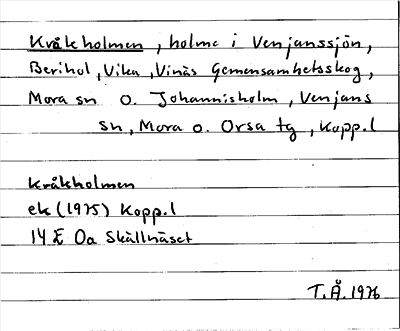 Kråkholmen, holme i Venjanssjön,
Berihol, Vika, Vinäs Gemensamhetsskog,
Mora sn o. Johannisholm, Venjans
sn, Mora o. Orsa tg, Kopp.l
Kråkholmen
ek (1975) Kopp.l
14 E 0a Skållnäset
T.Å. 1976